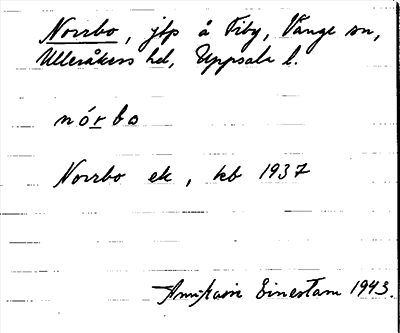 Norrbo, jfp å Fiby, Vänge sn,
Ulleråkers hd, Uppsala l.
nórbo
Norrbo ek, kb 1937
Einestam 1943.